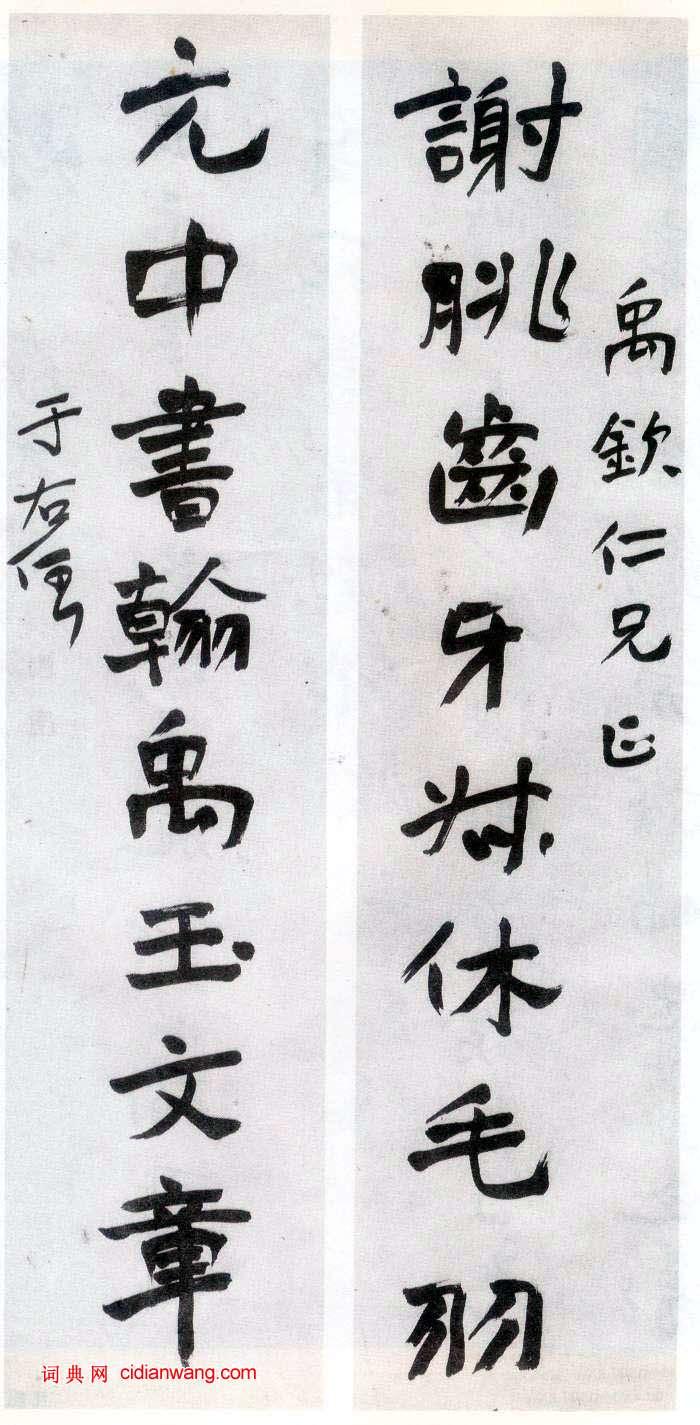 禹欽仁兄正
謝朓齒牙叔休毛羽
元中書翰禹玉文章
于右任
词典网 cidianwang.com